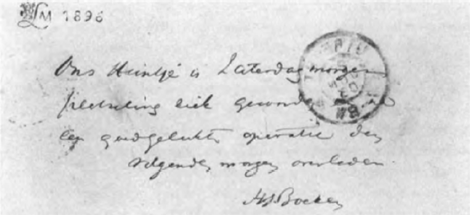 LM 1898
Ons Heintje is Zaterdag morgen
plotseling ziek geworden
een goedgelukte operatie den
volgenden morgen overleden.
HJBoeken